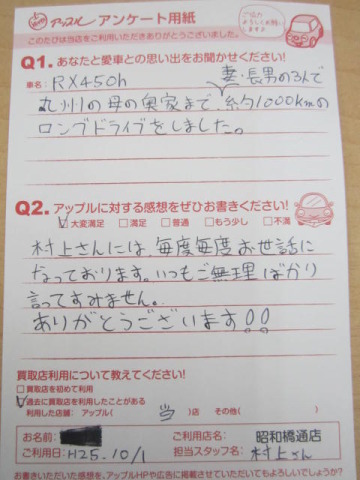 アップル アンケート用紙
ご協力よろしくお願いします♪
このたびは当店をご利用いただきありがとうございました。
Q1. あなたと愛車との思い出をお聞かせください!
車名: RX450h 妻・長男の3人で
九州の母の実家まで、約1000kmの
ロングドライブをしました。
Q2. アップルに対する感想をぜひお書きください!
大変満足 満足 普通 もう少し 不満
村上さんには、毎度毎度お世話に
なっております。いつもご無理ばかり
言ってすみません。
ありがとうございます!!
買取店利用について教えてください!
買取店を初めて利用
過去に買取店を利用したことがある
利用した店舗: アップル( 当 )店 その他( )
お名前: ご利用店名: 昭和橋通店
ご利用日: H25.10/1 担当スタッフ名: 村上さん
お書きいただいた感想を、アップルHPや広告に掲載させていただいてもよろしいでしょうか?